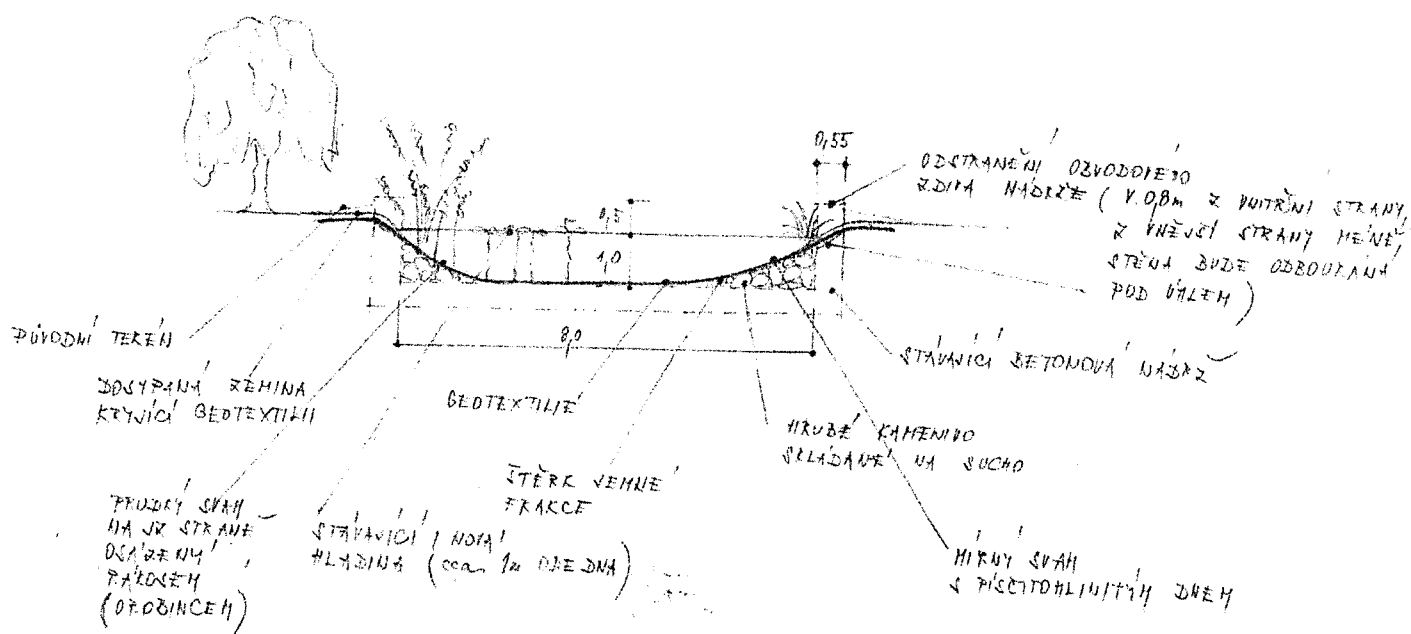 0,55
ODSTRANĚNÍ OBVODOVÉHO
ZDIVA NÁDRŽE (V. 0,8m Z VNITŘNÍ STRANY,
Z VNĚJŠÍ STRANY MÉNĚ,
STĚNA BUDE ODBOURÁNA
POD VÁLEM)
0,5
1,0
8,0
PŮVODNÍ TERÉN
STÁVAJÍCÍ BETONOVÁ NÁDRŽ
DOSYPANÁ ZEMINA
KRYJÍCÍ GEOTEXTILII
GEOTEXTILIE
HRUBÉ KAMENIVO
SKLÁDANÉ NA SUCHO
ŠTĚRK JEMNÉ
FRAKCE
PRUDKÝ SVAH
NA JZ STRANĚ
OSÁZENÝ
RÁKOSEM
(OROBINCEM)
STÁVAJÍCÍ / NOVÁ
HLADINA (cca 1m ODE DNA)
MÍRNÝ SVAH
S PÍSČITOHLINITÝM DNEM